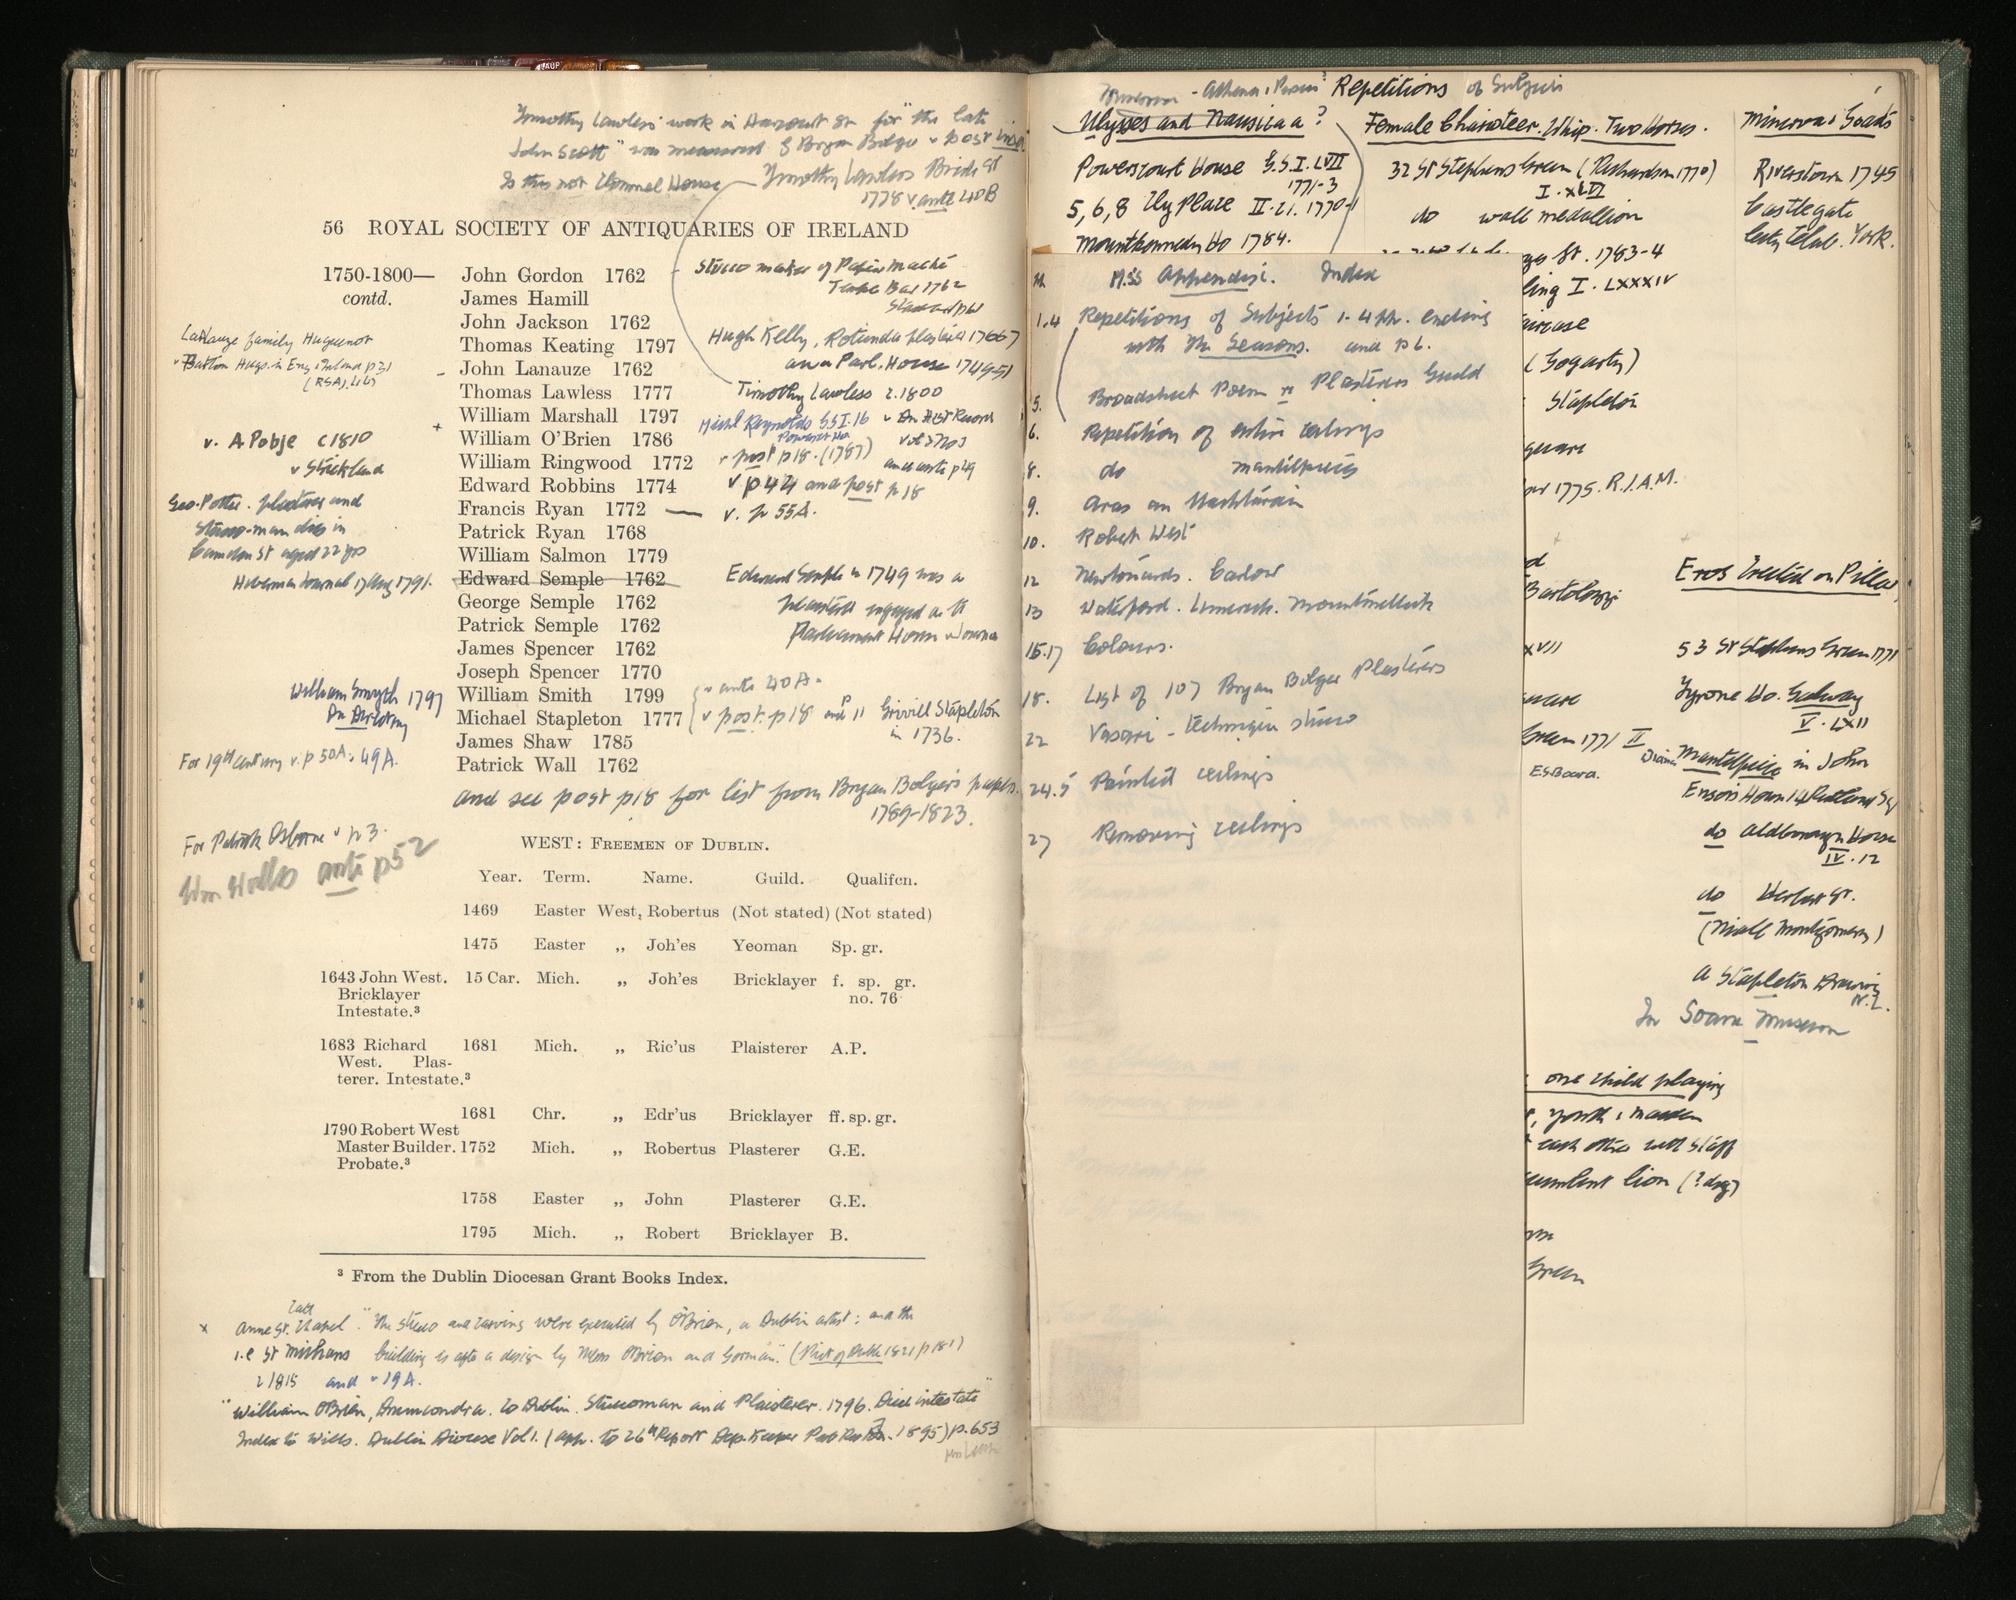 Timothy Lawless' work in Harcourt St for "the late
John Scott" was measured by Bryan Bolger v post
Is this not Clonmel House — Timothy Lawless Bride St
1778 v. ante 40B
56 ROYAL SOCIETY OF ANTIQUARIES OF IRELAND
1750-1800— John Gordon 1762 - Stucco maker of Papier Maché
contd. James Hamill
John Jackson 1762
Thomas Keating 1797
John Lanauze 1762
Thomas Lawless 1777
William Marshall 1797
William O'Brien 1786
William Ringwood 1772
Edward Robbins 1774
Francis Ryan 1772
Patrick Ryan 1768
William Salmon 1779
Edward Semple 1762
George Semple 1762
Patrick Semple 1762
James Spencer 1762
Joseph Spencer 1770
William Smith 1799
Michael Stapleton 1777
James Shaw 1785
Patrick Wall 1762
1762
Hugh Kelly, Rotunda plasterer 1766
and Parl. House 1749-51
Timothy Lawless c.1800
Michl Reynolds GSI.16
v post p18. (1787)
v p 44 and post p 18
v. p 55A.
Edward Semple in 1749 was a
plasterer engaged at the
Parliament House
v ante 40A.
v post. p18 and p 11 Stapleton
in 1736.
and see post p18 for list from Bryan Bolger's papers.
1789-1823.
Lanauze family Huguenot
v. A Pobje c1810
v Strickland
Geo. Potter. plasterer and
Stucco-man dies in
Camden St aged 22 yrs
Hibernian Journal 17 Aug 1791.
William Smyth 1797
Dn Directory
For 19th century v. p 50A; 49A.
For Patrick Osborne v p 3.
ante p52
WEST: FREEMEN OF DUBLIN.
Year. Term. Name. Guild. Qualifcn.
1469 Easter West, Robertus (Not stated) (Not stated)
1475 Easter ,, Joh'es Yeoman Sp. gr.
1643 John West. 15 Car. Mich. ,, Joh'es Bricklayer f. sp. gr.
Bricklayer no. 76
Intestate.³
1683 Richard 1681 Mich. ,, Ric'us Plaisterer A.P.
West. Plas-
terer. Intestate.³
1681 Chr. ,, Edr'us Bricklayer ff. sp. gr.
1790 Robert West
Master Builder. 1752 Mich. ,, Robertus Plasterer G.E.
Probate.³
1758 Easter ,, John Plasterer G.E.
1795 Mich. ,, Robert Bricklayer B.
³ From the Dublin Diocesan Grant Books Index.
x Anne St. Chapel "The stucco and carving were executed by O'Brien, a Dublin artist; and the
i.e St Michans building is after a design by Messrs O'Brien and Gorman". (Pict of Dublin 1821 p 181)
c 1815 and v 19A.
"William O'Brien, Drumcondra. Co Dublin. Stuccoman and Plaisterer. 1796. Died intestate"
Index to Wills. Dublin Diocese Vol 1. (app. to 26th Report Dep. Keeper Pub Rec 1895) p. 653
Repetitions of Subjects
Ulysses and Nausicaa?
Powerscourt House G.S.I. LVII
1771-3
5, 6, 8 Ely Place II. 21. 1770-1
Mountkennedy Ho 1784.
Female Charioteer. Whip. Two Horses.
32 St Stephens Green (Richardson 1770)
I. XLVI
do wall medallion
St. 1783-4
I. LXXXIV
(Gogarty)
Stapleton
1775. R.I.A.M.
Bartolozzi
XVII
Green 1771 II
ES Board.
one child playing
youth & maiden
each other with staff
lion (? dog)
Green
Minerva & Goats
Riverstown 1745
Castlegate
City Club. York.
Eros Erected on Pillar
53 St Stephens Green 1771
Tyrone Ho. Galway
V. LXII
Mantelpiece in John
Ensors House 14 Rutland Sq
do Aldborough House
IV. 12
do Herbert St.
(Niall Montgomery)
a Stapleton Drawing
N.L.
In Soane Museum
MSS Appendix. Index
1.4 Repetitions of Subjects 1-4 pp. ending
with The Seasons. and p 6.
5. Broadsheet Poem re Plasterers Guild
6. Repetition of entire ceilings
8. do mantelpieces
9. Aras an Uachtaráin
10. Robert West
12 Newtownards. Carlow
13 Waterford. Limerick. Mountmellick
15.17 Colours.
18. List of 107 Bryan Bolger Plasterers
22 Vasari - technique stucco
24.5 Painted ceilings
27 Removing ceilings